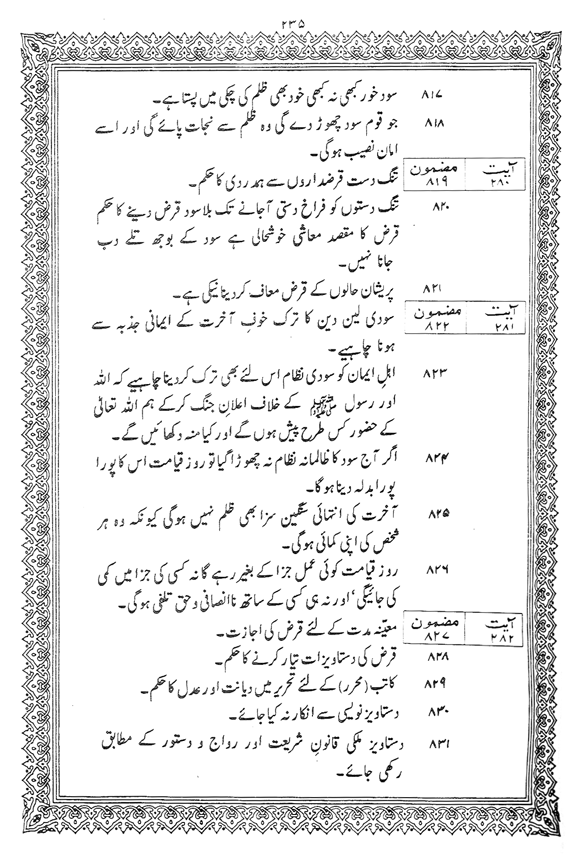 ۲۳۵
۸۱۷ سود خور کبھی نہ کبھی خود بھی ظلم کی چکی میں پستا ہے۔
۸۱۸ جو قوم سود چھوڑ دے گی وہ ظلم سے نجات پائے گی اور اسے
امان نصیب ہوگی۔
آیت ۲۸۰ مضمون ۸۱۹ تنگ دست قرضداروں سے ہمدردی کا حکم۔
۸۲۰ تنگ دستوں کو فراخ دستی آجانے تک بلاسود قرض دینے کا حکم
قرض کا مقصد معاشی خوشحالی ہے سود کے بوجھ تلے دب
جانا نہیں۔
۸۲۱ پریشان حالوں کے قرض معاف کردینا نیکی ہے۔
آیت ۲۸۱ مضمون ۸۲۲ سودی لین دین کا ترک خوفِ آخرت کے ایمانی جذبہ سے
ہونا چاہیے۔
۸۲۳ اہل ایمان کو سودی نظام اس لئے بھی ترک کردینا چاہیے کہ اللہ
اور رسول ﷺ کے خلاف اعلان جنگ کرکے ہم اللہ تعالیٰ
کے حضور کس طرح پیش ہوں گے اور کیا منہ دکھائیں گے۔
۸۲۴ اگر آج سود کا ظالمانہ نظام نہ چھوڑا گیا تو روز قیامت اس کا پورا
پورا بدلہ دینا ہوگا۔
۸۲۵ آخرت کی انتہائی سنگین سزا بھی ظلم نہیں ہوگی کیونکہ وہ ہر
شخص کی اپنی کمائی ہوگی۔
۸۲۶ روز قیامت کوئی عمل جزا کے بغیر رہے گا نہ کسی کی جزا میں کمی
کی جائیگی، اور نہ ہی کسی کے ساتھ ناانصافی وحق تلفی ہوگی۔
آیت ۲۸۲ مضمون ۸۲۷ معیّنہ مدت کے لئے قرض کی اجازت۔
۸۲۸ قرض کی دستاویزات تیار کرنے کا حکم۔
۸۲۹ کاتب (محرر) کے لئے تحریر میں دیانت اور عدل کا حکم۔
۸۳۰ دستاویز نویسی سے انکار نہ کیا جائے۔
۸۳۱ دستاویز ملکی قانونِ شریعت اور رواج و دستور کے مطابق
رکھی جائے۔